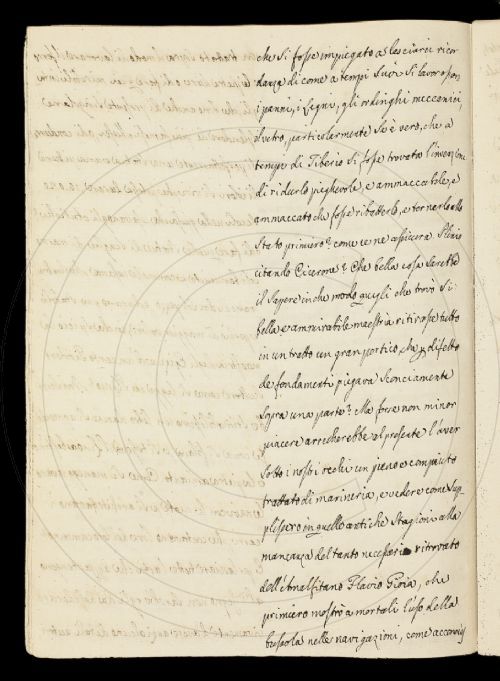 che si fosse impiegato a lasciarci ricor
danza di come a tempi suoi si lavorasson
i panni, i legni, gli ordinghi mecconici,
il vetro, particolarmente se è vero, che a
tempi di Tiberio si fosse trovata l'invenzione
di ridurlo pieghevole, e ammaccabile, e
ammaccato che fosse ribatterlo, e tornarlo allo
stato primiero? come ce ne assicura Plinio
citando Cicerone? Che bella cosa sarebbe
il sapere in che modo quegli che trovò sì
bella e ammirabile maestria ritirasse tutto
in un tratto un gran portico, che p difetto
de fondamenti piegava sconciamente
sopra una parte? Ma forse non minor
piacere arrecherebbe al presente l'aver
sotto i nostri occhi un pieno e compiuto
trattato di marineria, e vedere come sup
plissero in quelle antiche stagioni alla
mancanza del tanto necessario ritrovato
dell'Amalfitano Flavio Gioia, che
primiero mostrò a mortali l'uso della
bussola nelle navigazioni, come